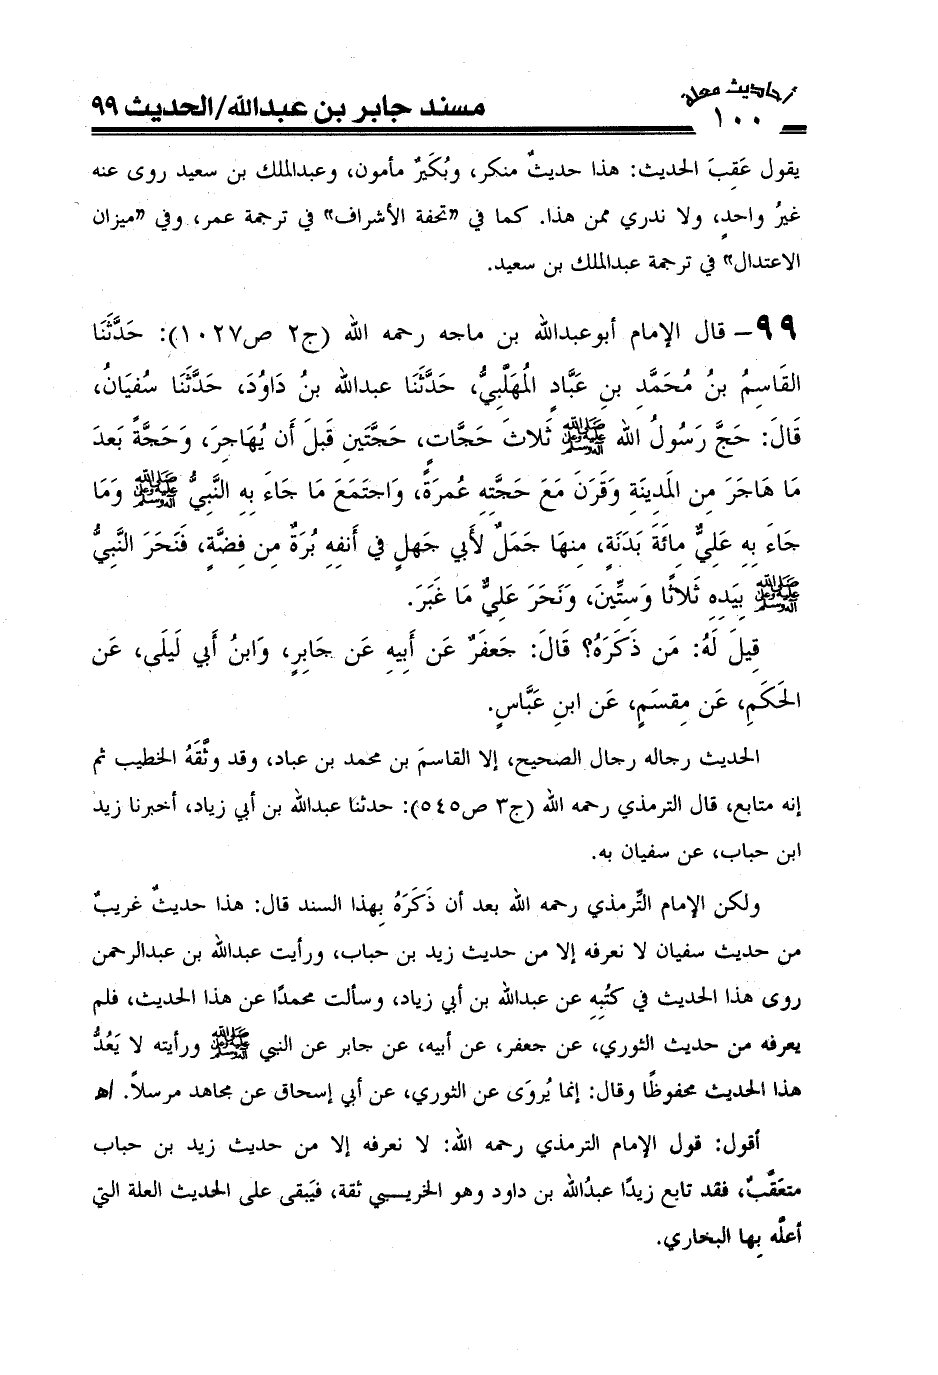 أحاديث معلة
١٠٠
مسند جابر بن عبدالله/الحديث ٩٩
يقول عَقِبَ الحديث: هذا حديثٌ منكر، وبُكَيرٌ مأمون، وعبدالملك بن سعيد روى عنه
غيرُ واحدٍ، ولا ندري ممن هذا. كما في «تحفة الأشراف» في ترجمة عمر، وفي «ميزان
الاعتدال» في ترجمة عبدالملك بن سعيد.
٩٩- قال الإمام أبوعبدالله بن ماجه رحمه الله (ج٢ ص١٠٢٧): حَدَّثَنَا
القَاسِمُ بنُ مُحَمَّدِ بنِ عَبَّادٍ المُهَلَّبِيُّ، حَدَّثَنَا عبدالله بنُ دَاوُدَ، حَدَّثَنَا سُفيَانُ،
قَالَ: حَجَّ رَسُولُ الله ﷺ ثَلاثَ حَجَّات، حَجَّتَينِ قَبلَ أَن يُهَاجِرَ، وَحَجَّةً بَعدَ
مَا هَاجَرَ مِن المَدِينَةِ وَقَرَنَ مَعَ حَجَّتِهِ عُمرَةً، وَاجتَمَعَ مَا جَاءَ بِهِ النَّبِيُّ ﷺ وَمَا
جَاءَ بِهِ عَلِيٌّ مِائَةَ بَدَنَةٍ، مِنهَا جَمَلٌ لأَبِي جَهلٍ فِي أَنفِهِ بُرَةٌ مِن فِضَّةٍ، فَنَحَرَ النَّبِيُّ
ﷺ بِيَدِهِ ثَلاثًا وَسِتِّينَ، وَنَحَرَ عَلِيٌّ مَا غَبَرَ.
قِيلَ لَهُ: مَن ذَكَرَهُ؟ قَالَ: جَعفَرٌ عَن أَبِيهِ عَن جَابِرٍ، وَابنُ أَبِي لَيلَى، عَن
الحَكَمِ، عَن مِقسَمٍ، عَن ابنِ عَبَّاسٍ.
الحديث رجاله رجال الصحيح، إلا القاسمَ بن محمد بن عباد، وقد وثَّقَهُ الخطيب ثم
إنه متابع، قال الترمذي رحمه الله (ج٣ ص٥٤٥): حدثنا عبدالله بن أبي زياد، أخبرنا زيد
ابن حباب، عن سفيان به.
ولكن الإمام التِّرمذي رحمه الله بعد أن ذَكَرَهُ بِهذا السند قال: هذا حديثٌ غريبٌ
من حديث سفيان لا نعرفه إلا من حديث زيد بن حباب، ورأيت عبدالله بن عبدالرحمن
روى هذا الحديث في كتُبِهِ عن عبدالله بن أبي زياد، وسألت محمدًا عن هذا الحديث، فلم
يعرفه من حديث الثوري، عن جعفر، عن أبيه، عن جابر عن النبي ﷺ ورأيته لا يَعُدُّ
هذا الحديث محفوظًا وقال: إنما يُروَى عن الثوري، عن أبي إسحاق عن مجاهد مرسلاً. اهـ
أقول: قول الإمام الترمذي رحمه الله: لا نعرفه إلا من حديث زيد بن حباب
متعَقَّبٌ، فقد تابع زيدًا عبدُالله بن داود وهو الخريبي ثقة، فيَبقى على الحديث العلة التي
أعلَّه بِها البخاري.